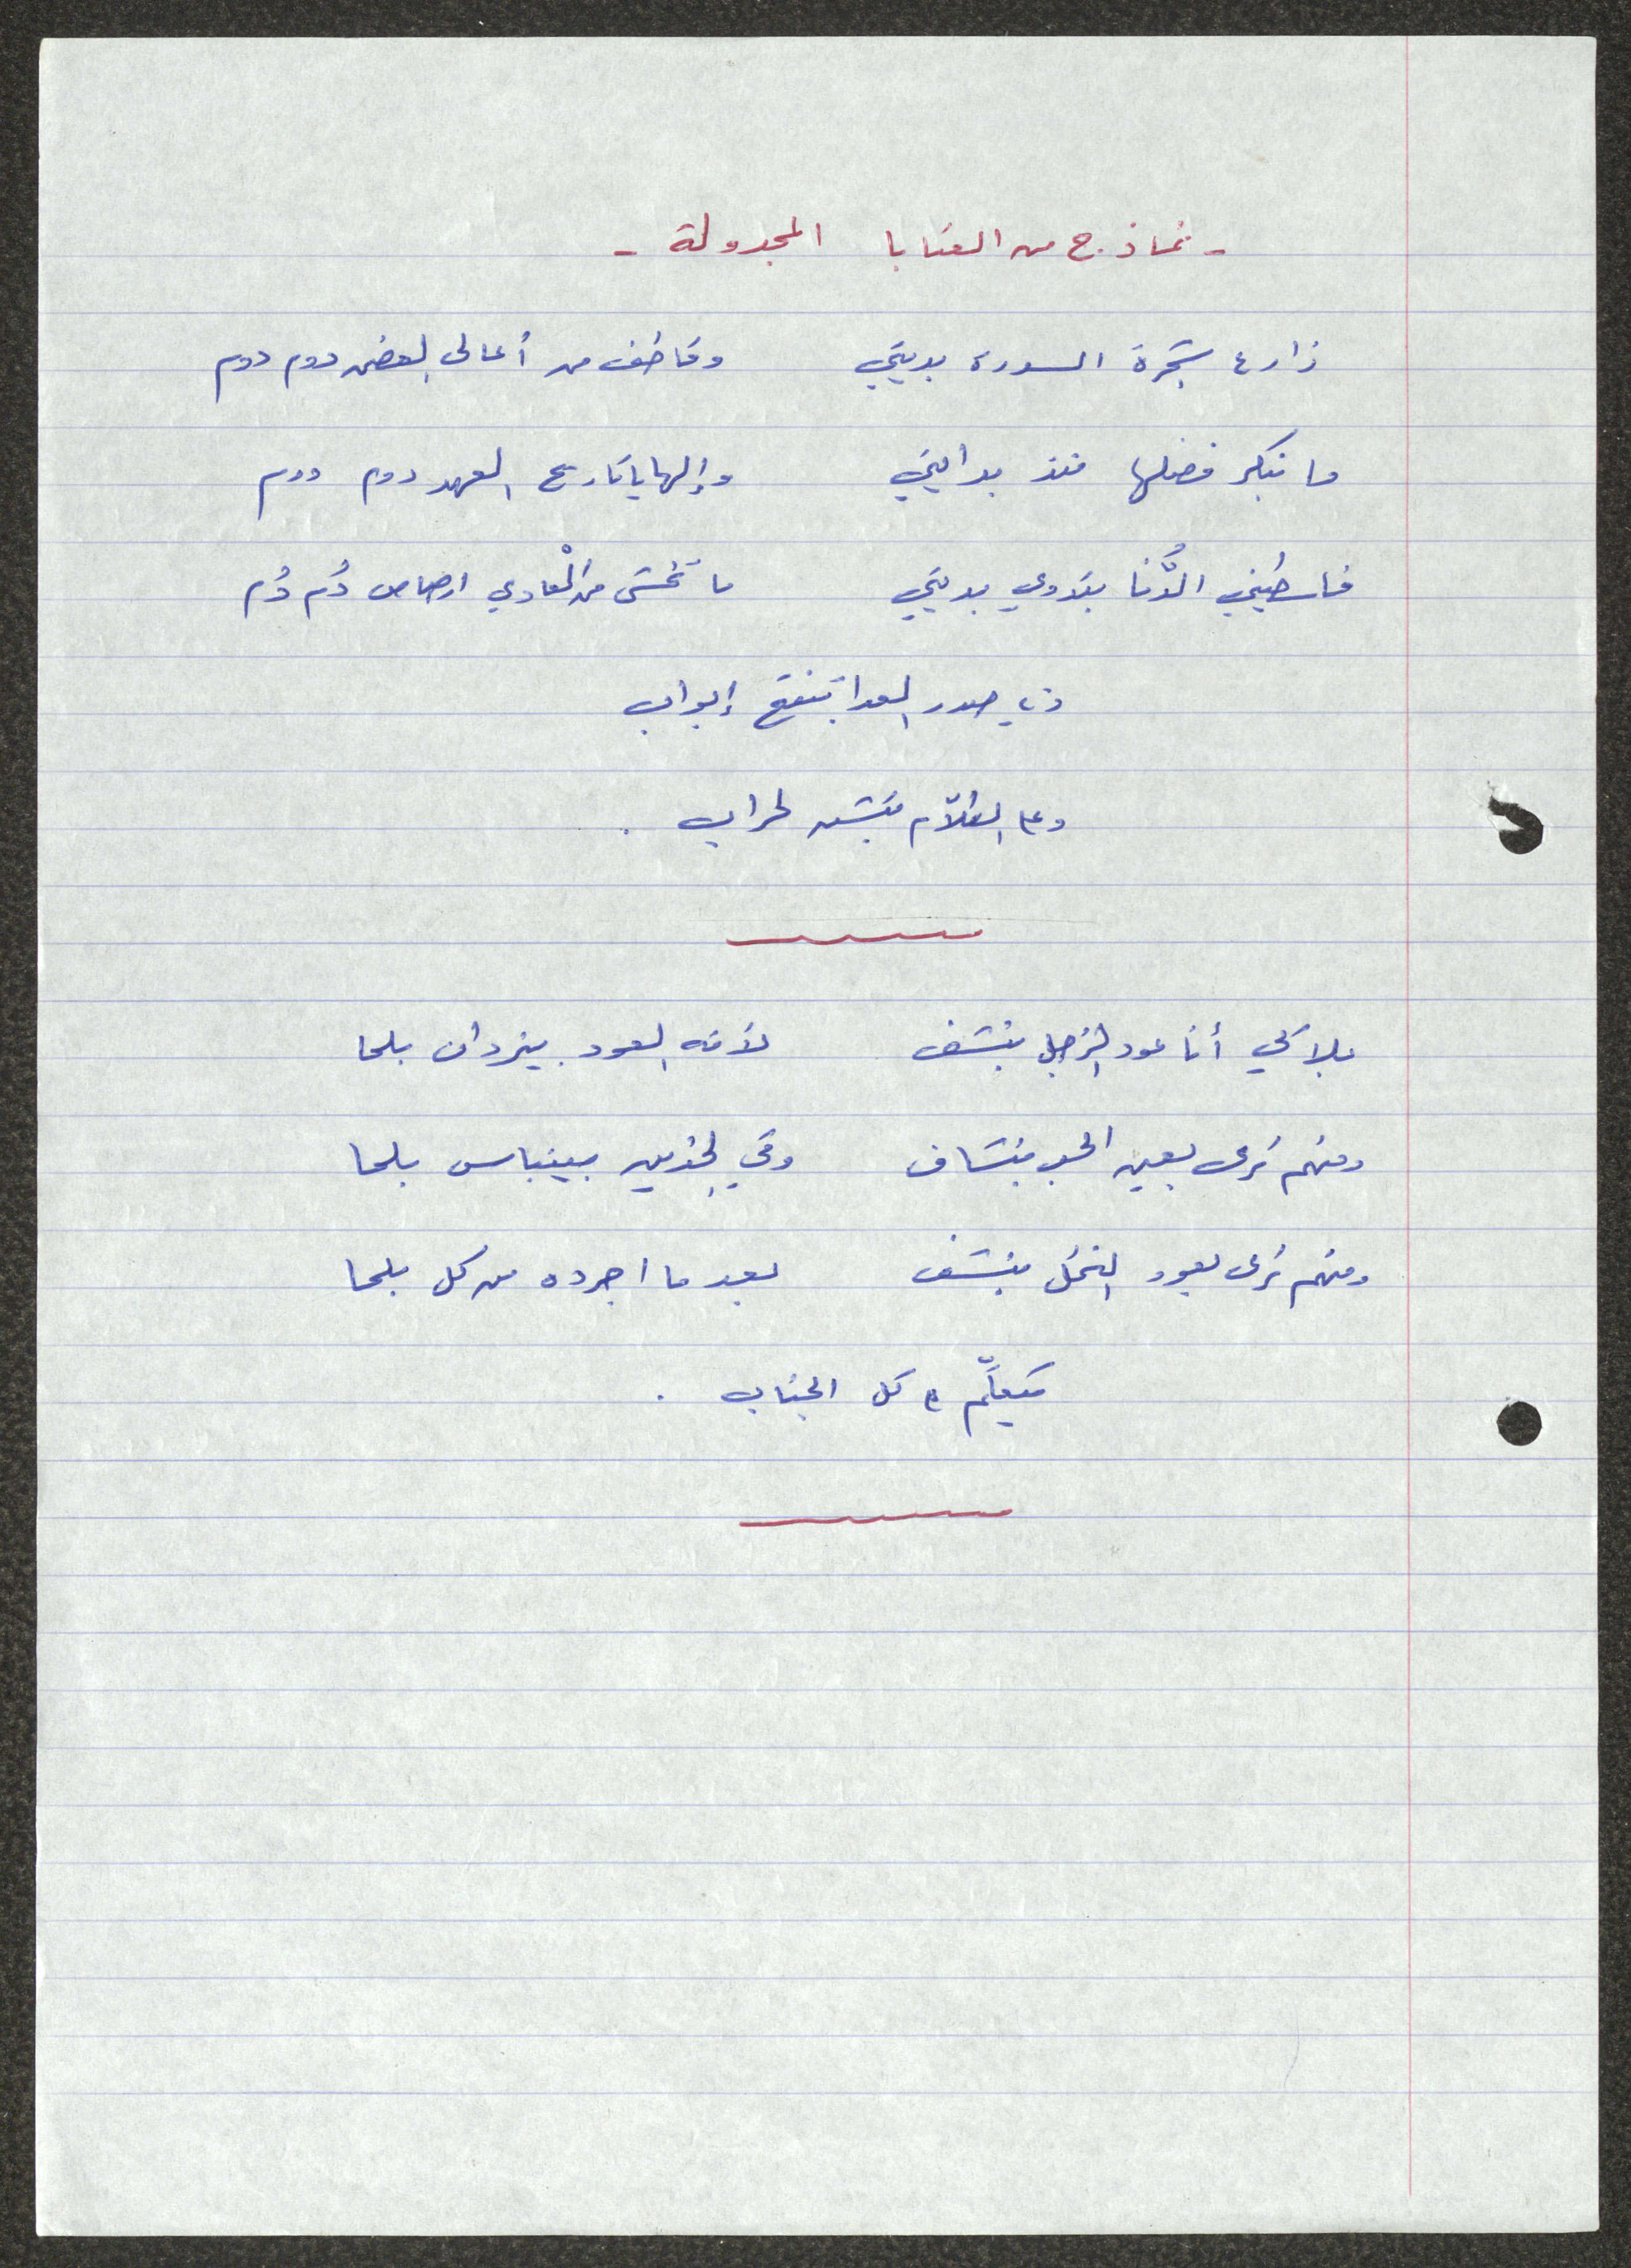 - نماذج من العتابا المجدولة -
زارع شجرة السدره بديتي وقاطف من أعالي الغصن دوم دوم
ما نبكر فضلها منذ بدايتي وإلها يا تاريخ العهد دوم دوم
فلسطيني الدُّنا بتدوي بديتي ما تخشى من الْمعادي ارصاص دُم دُم
وبصدر العدا بتفتح إبواب
وعا الظلّام منشن لحراب .
بلاكي أنا عود الزجل بنشف لأنه العود بيزدان بلحا
ومنهم نرى بعين الحب بنشاف وفي الخدين بينباس بلحا
ومنهم نرى بعود النخل بنشف بعد ما اجرده من كل بلحا
بيعلّم ع كل الجناب .